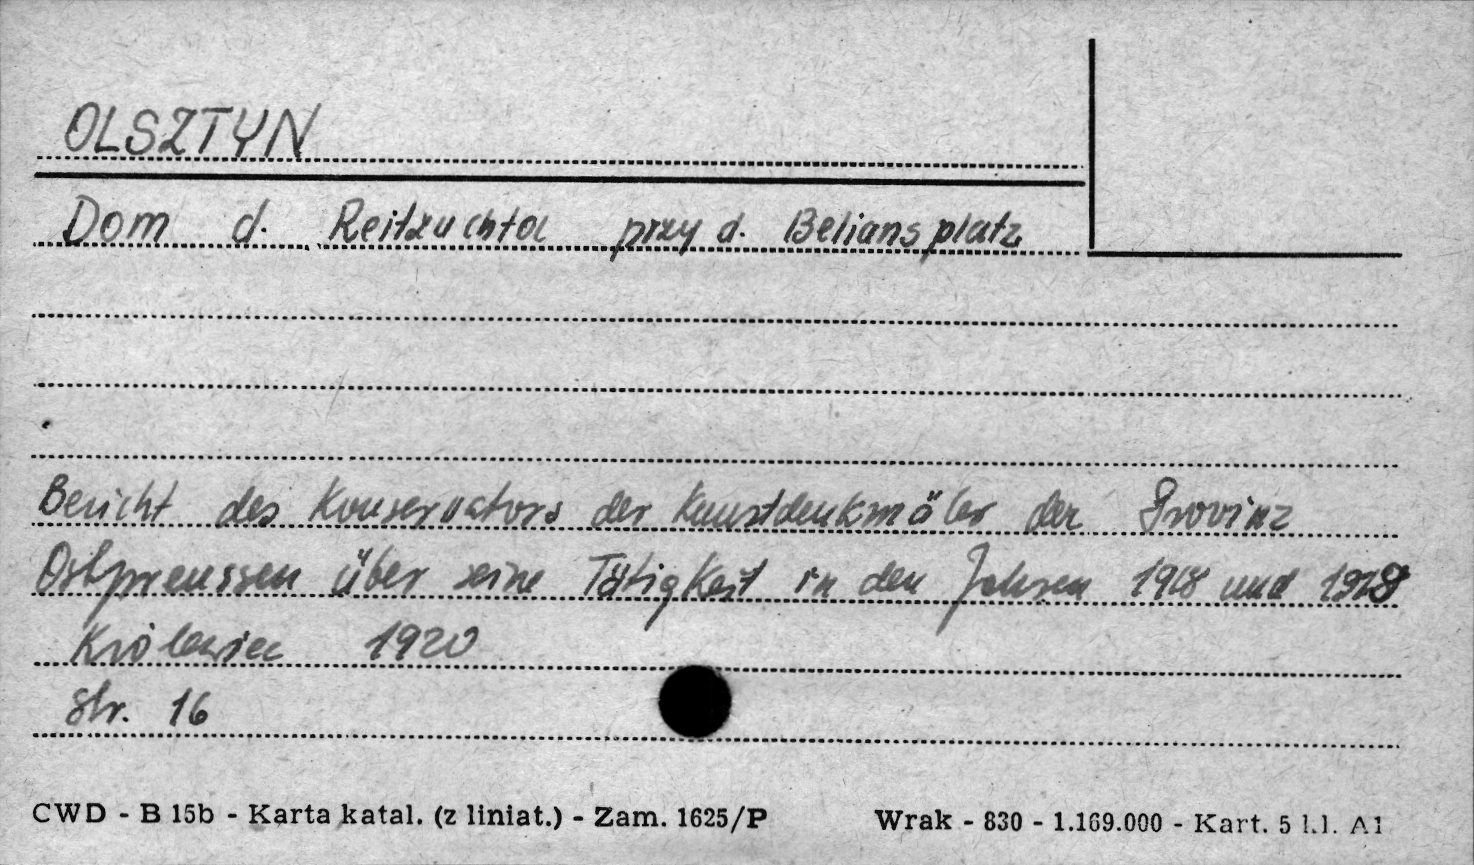 OLSZTYN
Dom d. Reitzuchta przy d. Beliansplatz
Bericht des Konservators der Kunstdenkmäler der Provinz
Ostpreussen über seine Tätigkeit in den Jahren 1918 und 1919
Królewiec 1920
Str. 16
CWD - B 15b - Karta katal. (z liniat.) - Zam. 1625/P Wrak - 830 - 1.169.000 - Kart. 5 kl. A1